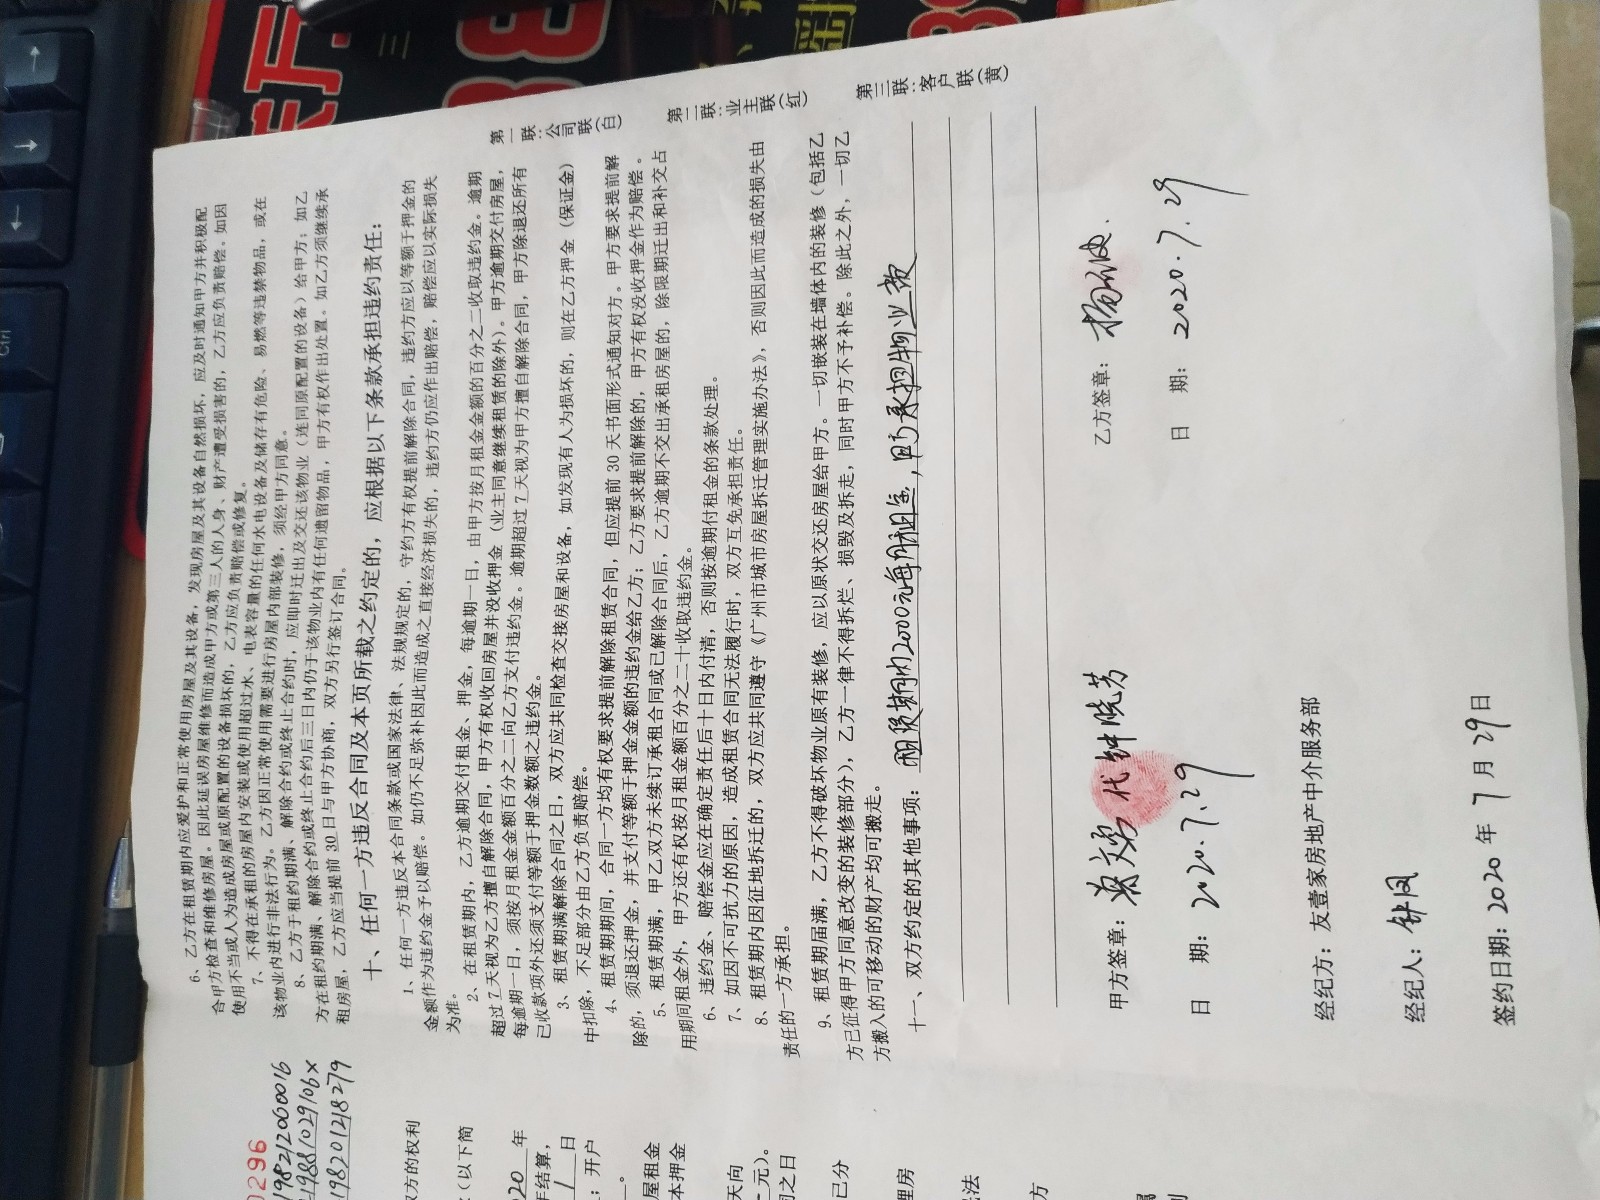 6、乙方在租赁期内应爱护和正常使用房屋及其设备，发现房屋及其设备自然损坏，应及时通知甲方并积极配
合甲方检查和维修房屋。因此延误房屋维修而造成甲方或第三人的人身、财产遭受损害的，乙方应负责赔偿。如因
使用不当或人为造成房屋或原配置的设备损坏的，乙方应负责赔偿或修复。
7、不得在承租的房屋内安装或使用超过水、电表容量的任何水电设备及储存有危险、易燃等违禁物品，或在
该物业内进行非法行为。乙方因正常使用需要进行房屋内部装修，须经甲方同意。
8、乙方于租约期满、解除合约或终止合约时，应即时迁出及交还该物业（连同原配置的设备）给甲方；如乙
方在租约期满、解除合约或终止合约后三日内仍于该物业内有任何遗留物品，甲方有权作出处置。如乙方须继续承
租房屋，乙方应当提前 30 日与甲方协商，双方另行签订合同。
十、任何一方违反合同及本页所载之约定的，应根据以下条款承担违约责任：
1、任何一方违反本合同条款或国家法律、法规规定的，守约方有权提前解除合同，违约方应以等额于押金的
金额作为违约金予以赔偿。如仍不足弥补因此而造成之直接经济损失的，违约方仍应作出赔偿，赔偿应以实际损失
为准。
2、在租赁期内，乙方逾期交付租金、押金，每逾期一日，由甲方按月租金金额的百分之二收取违约金。逾期
超过 7 天视为乙方擅自解除合同，甲方有权收回房屋并没收押金（业主同意继续租赁的除外）。甲方逾期交付房屋，
每逾期一日，须按月租金金额百分之二向乙方支付违约金。逾期超过 7 天视为甲方擅自解除合同，甲方除退还所有
已收款项外还须支付等额于押金数额之违约金。
3、租赁期满解除合同之日，双方应共同检查交接房屋和设备，如发现有人为损坏的，则在乙方押金（保证金）
中扣除，不足部分由乙方负责赔偿。
4、租赁期期间，合同一方均有权要求提前解除租赁合同，但应提前 30 天书面形式通知对方。甲方要求提前解
除的，须退还押金，并支付等额于押金金额的违约金给乙方；乙方要求提前解除的，甲方有权没收押金作为赔偿。
5、租赁期满，甲乙双方未续订承租合同或已解除合同后，乙方逾期不交出承租房屋的，除限期迁出和补交占
用期间租金外，甲方还有权按月租金额百分之二十收取违约金。
6、违约金、赔偿金应在确定责任后十日内付清，否则按逾期付租金的条款处理。
7、如因不可抗力的原因，造成租赁合同无法履行时，双方互免承担责任。
8、租赁期内因征地拆迁的，双方应共同遵守《广州市城市房屋拆迁管理实施办法》，否则因此而造成的损失由
责任的一方承担。
9、租赁期届满，乙方不得破坏物业原有装修，应以原状交还房屋给甲方。一切嵌装在墙体内的装修（包括乙
方已征得甲方同意改变的装修部分），乙方一律不得拆烂、损毁及拆走，同时甲方不予补偿。除此之外，一切乙
方搬入的可移动的财产均可搬走。
十一、双方约定的其他事项：期内2000元每月租金，承担物业费
甲方签章：代钟晓芳
乙方签章：
日 期：2020.7.29
日 期：2020.7.29
经纪方：友壹家房地产中介服务部
经纪人：
签约日期：2020 年 7 月 29 日
第一联：公司联（白）
第二联：业主联（红）
第三联：客户联（黄）
0296
1982120600016
119881029106X
198201218279
双方的权利
（以下简
20 年
结算，
1 日
；开户
屋租金
本押金
天向
元）。
同之日
已分
理房
法
方
Ctrl